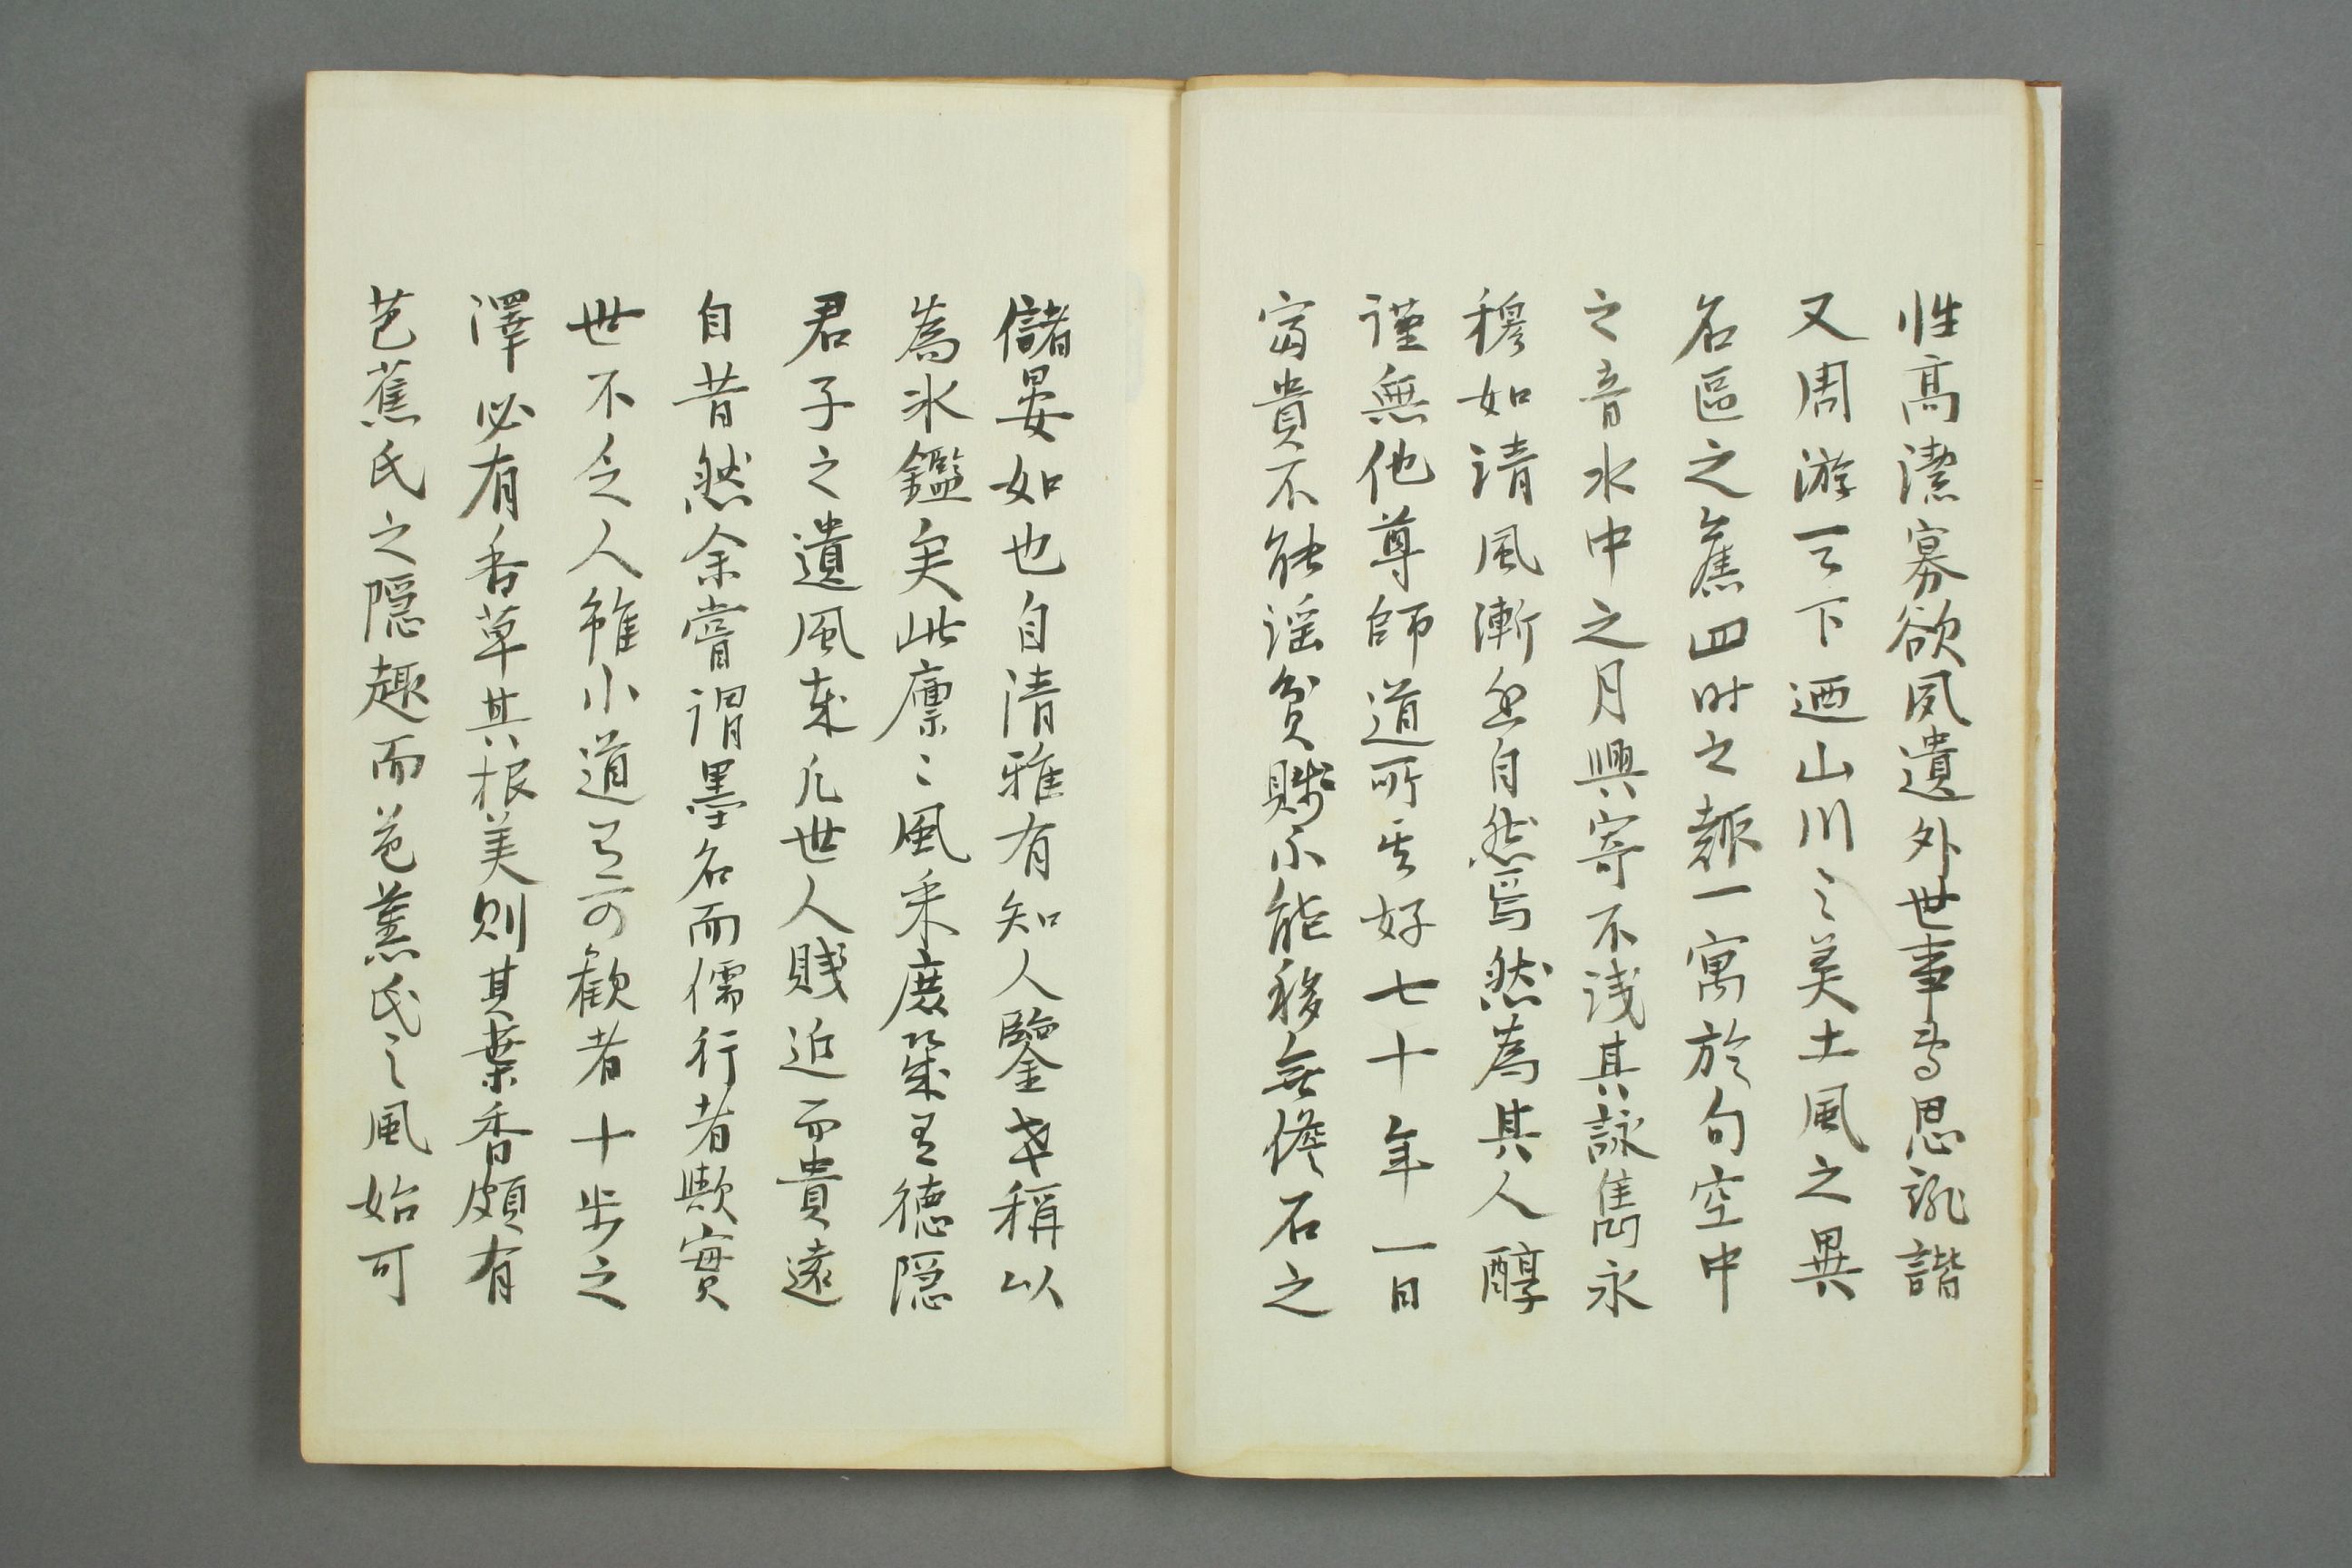 性高潔寡欲夙遺外世事専思誹諧
又周游天下迺山川之美土風之異
名區之舊四时之趣一寓於句空中
之音水中之月興寄不浅其詠雋永
穆如清風漸無自然焉然為其人醇
謹無他尊師道所其好七十年一日
富貴不能淫貧賤不能移無儋石之
儲晏如也自清雅有知人鑒世稱以
為氷鑑矣此廩〻風采庶幾有德隠
君子之遺風車凡世人賤近而貴遠
自昔然余嘗謂墨名而儒行者歟實
世不乏人雖小道有可観者十步之
澤必有香草其根美則其葉香頗有
芭蕉氏之隠趣而芭蕉氏之風始可